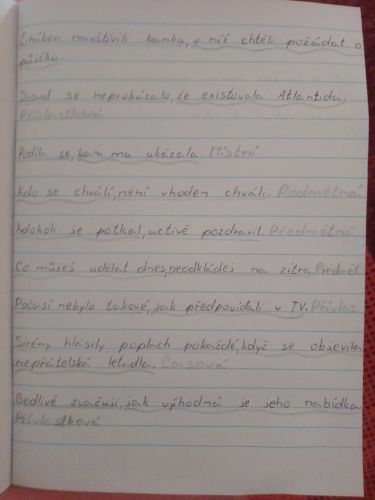 Čihákovi navštívili banku, v níž chtěli požádat o
půjčku.
Dosud se neprokázalo, že existovala Atlantida.
Přívlastková
Podíla se, kam mu ukázala. Místní
Kdo se chválí, není vhoden chvály. Podmětná
Kdokoli se potkal, uctivě pozdravil Předmětná
Co můžeš udělat dnes, neodkládej na zítra. Předmět
Počasí nebylo takové, jak předpovídali v TV. Přívlas
Sirény hlásily poplach pokaždé, když se objevila
nepřátelská letadla. Časová
Bedlivě zvažují, jak výhodná je jeho nabídka
Přívlastková